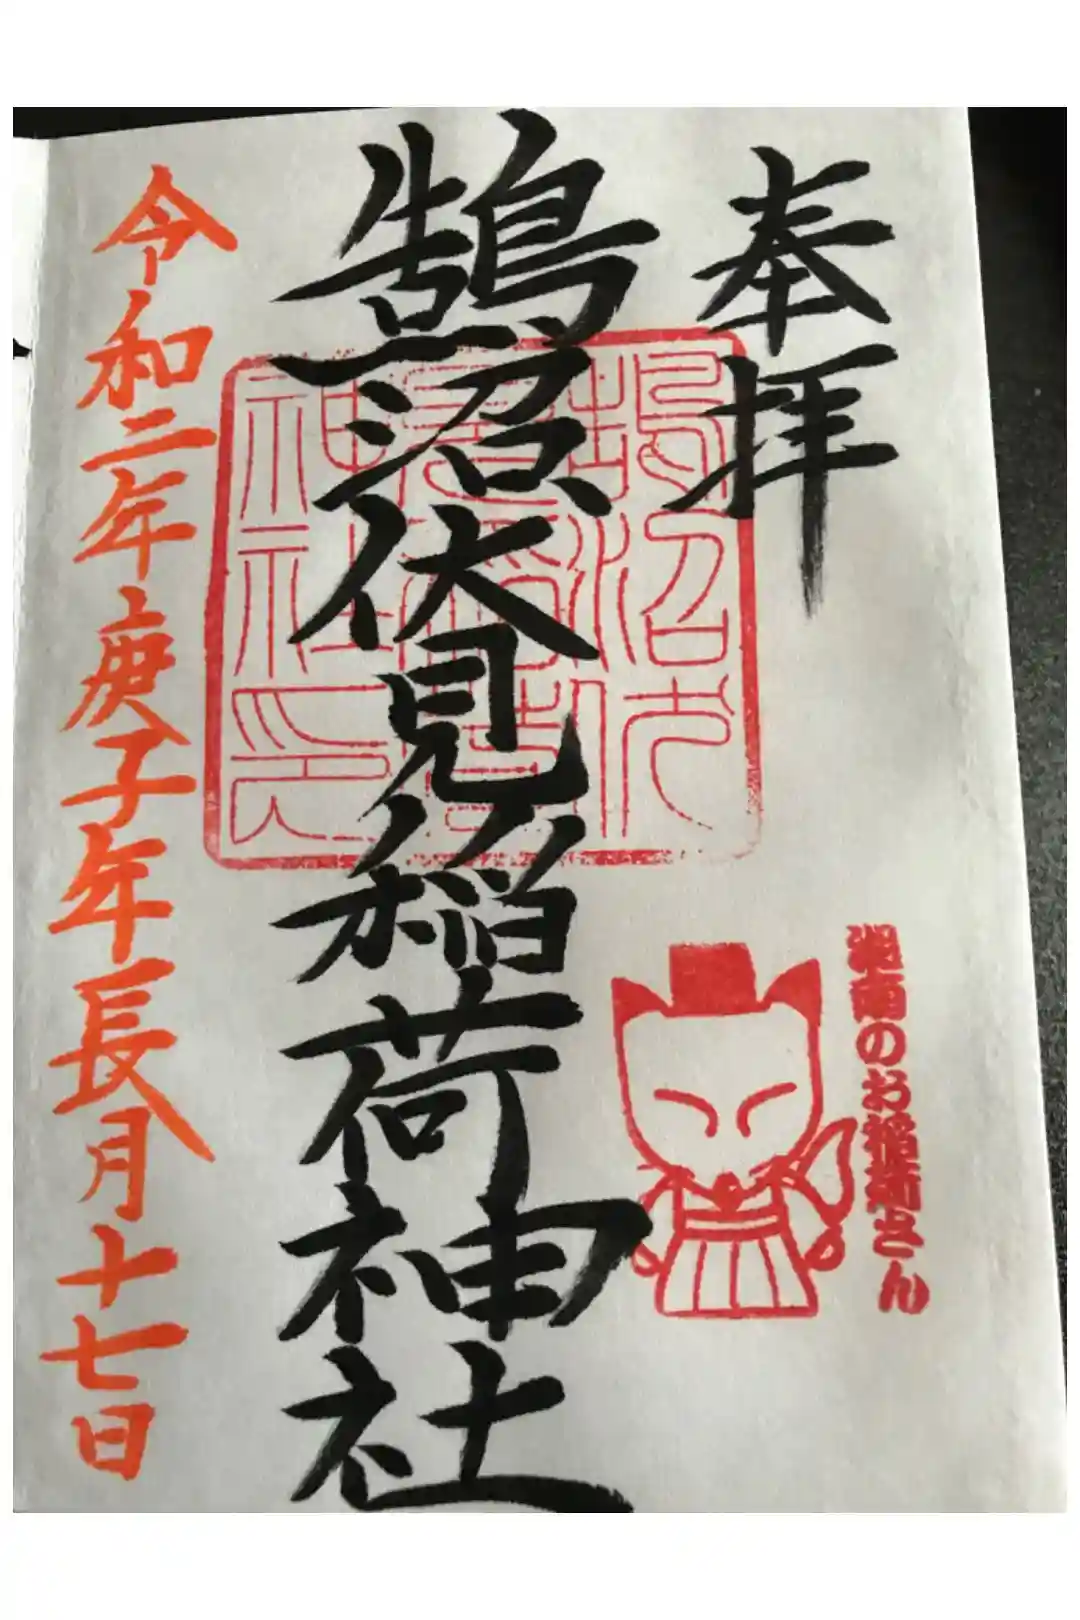 奉拝
鵠沼伏見稲荷神社
令和二年庚子年長月十七日
湘南のお稲荷さん
鵠沼伏
見稲荷
神社印